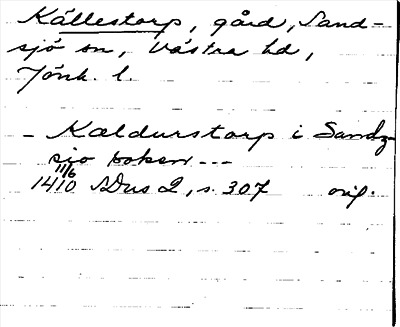 Källestorp, gård, Sand-
sjö sn, Västra hd,
Jönk. l.
- Kældurstorp i Sandz-
sio soken ---
11/6
1410 SDns 2, s. 307 orig.